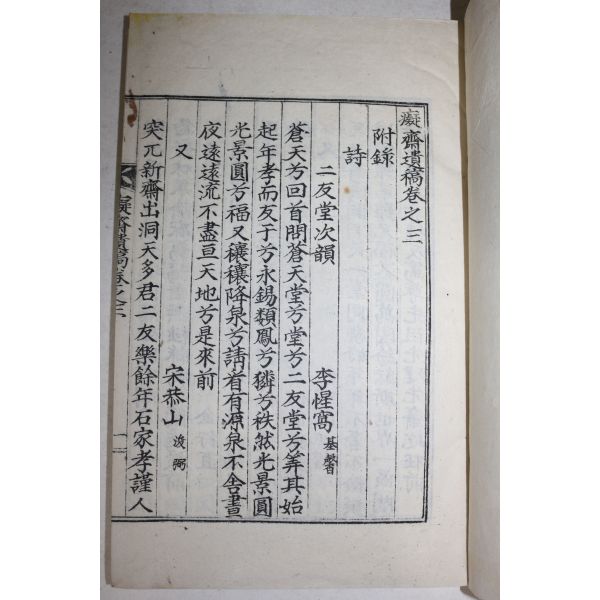 癡齋遺稿卷之三
附錄
詩
二友堂次韻 李惺窩 基馨
蒼天兮回首問蒼天堂兮堂兮二友堂兮筭其始
起年孝而友于兮永錫類鳳兮獜兮秩然光景圓
光景圓兮福又穰穰降泉兮請看有源泉不舍晝
夜遠遠流不盡亘天地兮是來前
又 宋恭山 浚弼
突兀新齋出洞天多君二友樂餘年石家孝謹人
癡齋遺稿卷之三
一